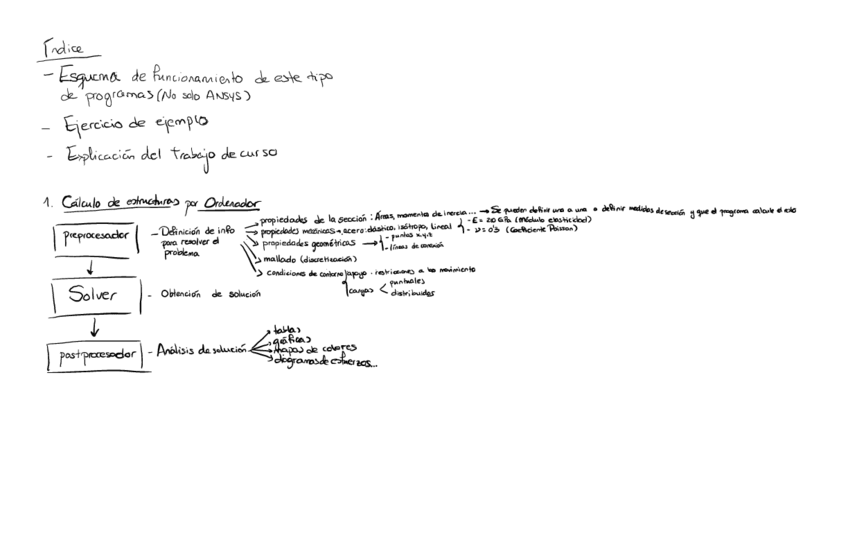 Índice
- Esquema de funcionamiento de este tipo
de programas (No solo ANSYS)
- Ejercicio de ejemplo
- Explicación del trabajo de curso
1. Cálculo de estructuras por Ordenador
preprocesador
- Definición de info
para resolver el
problema
propiedades de la sección: Áreas, momentos de inercia... → Se pueden definir una a una o definir medidas de sección y que el programa calcule el resto
propiedades mecánicas → acero: elástico, isótropo, lineal
- E = 210 GPa (Módulo elasticidad)
- ν = 0'3 (Coeficiente Poisson)
propiedades geométricas →
- puntos x,y,z
- líneas de conexión
mallado (discretización)
condiciones de contorno
apoyo - restricciones a los movimientos
cargas
puntuales
distribuidas
Solver
- Obtención de solución
postprocesador
- Análisis de solución
tablas
gráficas
mapas de colores
diagramas de esfuerzos...